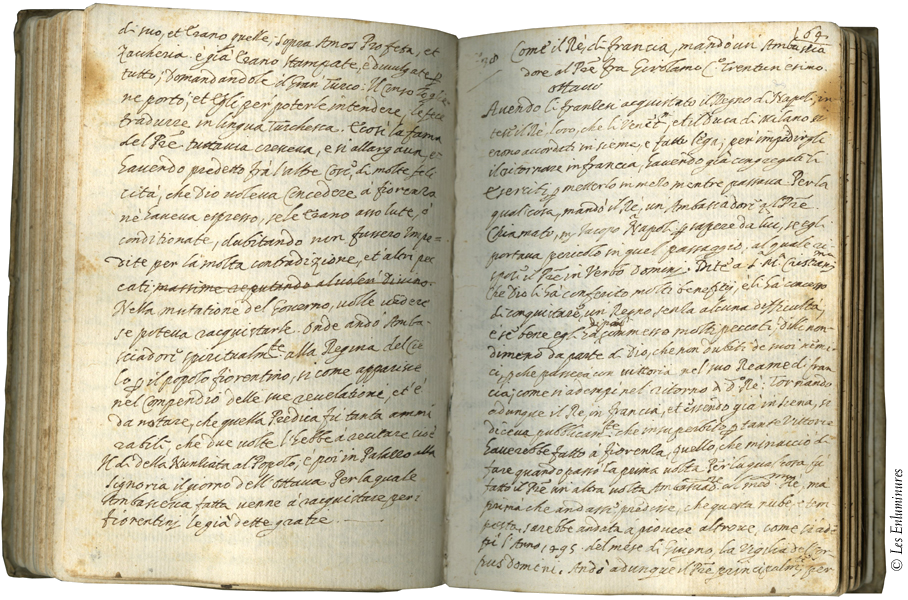 di suo, et erano quelle, sopra Amos Profeta, et
Zaccheria. è già erano stampate, è divulgate p
tutto; Domandandole il Gran Turco. Il Conso
ne portò; et egli per poterle intendere, le fece
tradurre in lingua Turchesca. E così la fama
del Pre tuttavia cresceva, e si allargava, e
havendo predetto frà l'altre Cose, di molte feli
cità, che Dio voleva concedere à fiorenza
ne haveva espresso, se le erano assolute, ò
conditionate, dubitando non fussero impe=
dite per la molta contradizione, et altri pec
cati massime repugnando al voler Divino.
Nella mutatione del Governo, volle vedere
se poteva racquistarle. Onde andò Amba-
sciadore spiritualmte. alla Regina del Cie
lo, p il popolo fiorentino, si come apparisce
nel Compendio delle sue revelationi, et è
da notare, che quella Predica fù tanta ammi
rabili, che due volte l'hebbe à recitare cioè
Il dì della Nuntiata al Popolo, e poi in Palazzo alla
Signoria il giorno dell'ottava. Per la quale
Ambasceria fatta venne à racquistare per i
fiorentini le già dette gratie.
164
Come il Rè, di francia, mandò un' Ambascia
dore al Pre fra Girolamo Co Trentun'esimo
ottavo
Avendo li franzesi acquistato il Regno di Napoli, in
tese il Rè, loro, che li Venet, et il Duca di Milano si
erono accordati insieme, e fatto lega; per impedirgli
il ritornare in francia, havendo già congregati li
Eserciti, p metterlo in melo mentre passava. Per la
qual cosa, mandò il Rè, un Ambasciadore al Pre
Chiamato, m Iacopo Napol p sapere da lui, se egli
portava pericolo in quel passaggio, al quale ri=
spose il Pre in Verbo Domini. Dite à S. M. Cristianima
che Dio li hà conferito molti benefizij, e li hà concesso
di conquistare, un Regno senza alcuna difficultà,
è se bene egli hà di poi commesso molti peccati, dili non-
dimeno da parte di Dio, che non dubiti de suoi nimi-
ci, p che passerà con vittoria nel suo Reame di fran
cia; come si adempì nel ritorno di do Rè. Tornando
adunque il Rè in francia, et essendo già in siena, si
diceva pubblicamte. che insuperbito p tante Vittorie
haverebbe fatto à fiorenza, quello, che minacciò di
fare quando passò la prima volta. Per la qual cosa, fù
fatto il Pre un'altra volta Ambasciad. al medmo Rè, ma
prima che andasse predisse, che questa nube è un
posto, sarebbe andata a piovere altrove, come si ad
fù l'Anno 1495. del mese di Giugno, la Vigilia del Cor
pus domini. Andò adunque il Pre principalmte p fier
© Les Enluminures